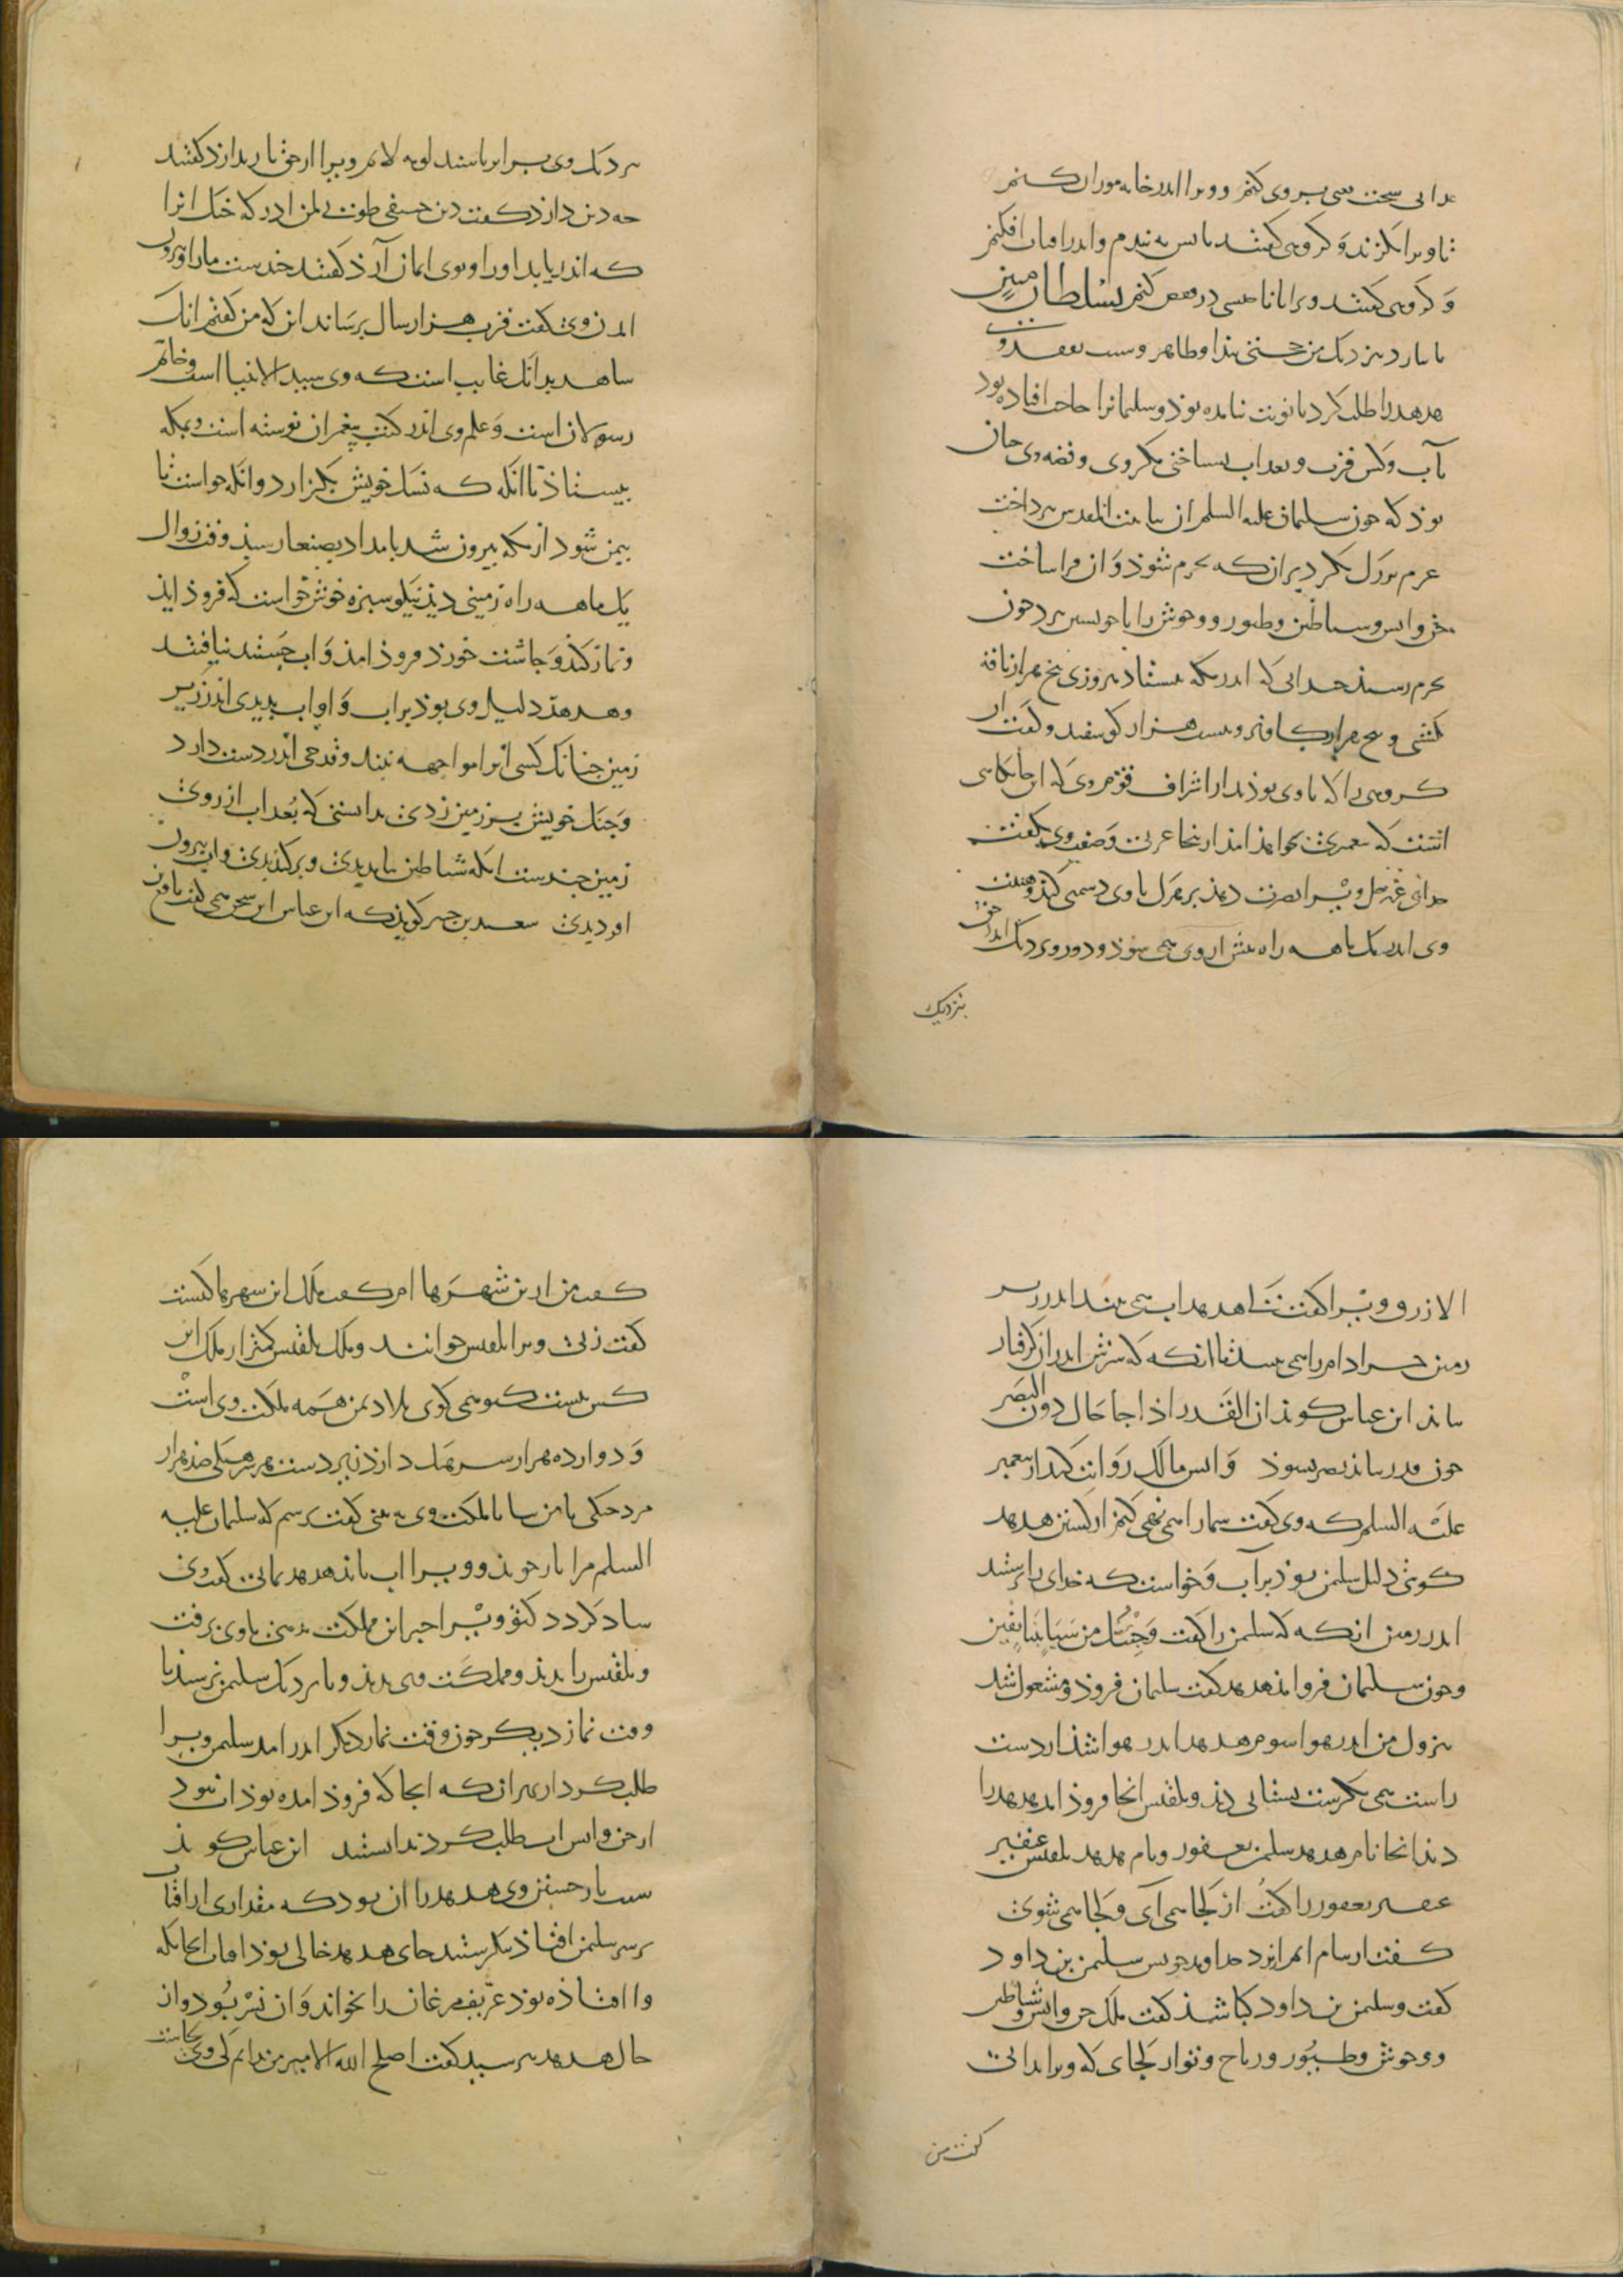 عذابی سخت یعنی پر وی کنم و ویرا اندر خانه موران کنم
تا ویرا بکزند و کروهی کفتند باش به بندم و اندر افتاب افکنم
و کروهی کفتند ویرا با ناجنسی در قفص کنم بسلطان مبین
یا بیارد بنزدیک من حجتی پیدا و ظاهر و سبب تفقد وی
هدهد را طلب کرد با نوبت نیامده بوذ و سلیمانرا حاجت افتاده بود
بآب و کس قرب و بعد اب نشناختی مکر وی و قصه وی جنان
بوذ که جون سلیمان علیه السلم از بنا بیت المقدس بپرداخت
عزم بر دل بکرد بران که بحرم شوذ و ان فرا ساخت
جن و انس و شیاطین و طیور و وحوش را با خویشتن ببرد جون
بحرم رسیذ جندانی که اندر مکه بیستاد هر روزی پنج هزار ناقه
بکشتی و پنج هزار کاو نر و بیست هزار کوسفند و کفت ار
کروهی را که با وی بوذند از اشراف قوم وی که این جایکاهی
اینست که پیغمبری بخواهذ امذ از ینجا عربی و صفت وی بکفت
خدای عز و جل ویرا نصرت دهذ بر هرک با وی دشمنی کنذ و هیبت
وی اندر یک ماهه راه پیش از وی همی شوذ و دور و نزدیک اندر حق
بنزدیک
نزدیک وی برابر باشند لومه لایم ویرا از حق باز ندارذ کفتند
جه دین دارذ کفت دین حنیفی طوبی لمن ادرکه خنک انرا
که اندر یابد اورا و بوی ایمان آرذ کفتند جندست میان ما و بیرون
امدن وی کفت قرب هزار سال برساند این که من کفتم انک
شاهد بدانک غایب است که وی سید الانبیا است و خاتم
رسولان است و علم وی اندر کتب پیغمبران نوشته است و بمکه
بیستاذ تا انکه که نسک خویش بکزارد و انکه خواست تا
بیمن شود از مکه بیرون شد بامداد بصنعا رسیذ وقت زوال
یک ماهه راه زمینی دیذ نیکو سبزه خوش خواست که فروذ ایذ
و نماز کنذ و جاشت خورذ فروذ امذ و اب جستند نیافتند
و هدهد دلیل وی بوذ بر اب و او اب بدیدی اندر زیر
زمین جنانک کسی انرا مواجهه بیند و قدحی اندر دست دارد
و جنک خویش بر زمین زدی بدانستی که بعد اب از روی
زمین جندست انکه شیاطین بیامدندی و بر کندندی و اب بیرون
اوردندی سعید بن جبیر کویذ که ابن عباس این سخن همی کفت نافع بن
الازرق ویرا کفت هدهد اب همی بیند اندر زیر
زمین جرا دام را همی نبیند تا انکه که سرش اندر ان کرفتار
بماند ابن عباس کویذ ان القدر اذا جا حال دون البصر
جون قدر بیاید بصر بشوذ و انس مالک روایت کند از پیغمبر
علیه السلم که وی کفت شمارا همی نهی کنم از کشتن هدهد
کوشی دلیل سلیمن بوذ بر آب و خواست که خدای را پرستند
اندر زمین انکه که سلیمن را کفت وجئتک من سبا بنبا یقین
و جون سلیمان فروامذ هدهد کفت سلیمان فروذ و مشغول شد
بنزول من اندر هوا شوم هدهد اندر هوا شذ از دست
راست همی نکرست بستانی دیذ و بلقیس انجا فروذ امد هدهد را
دیذ انجا نام هدهد سلیمن یعفور و نام هدهد بلقیس عنفیر
عنفیر یعفور را کفت از کجا می آی و کجا می شوی
کفت از شام امدم با نزد خداوند خویش سلیمن بن داود
کفت و سلیمن بن داود کباشذ کفت ملک جن و انس و شیاطین
و وحوش و طیور و ریاح و تو از کجای که ویرا ندانی
کفت من
کفت من از ین شهرها ام کفت ملک این شهرها کیست
کفت زنی ویرا بلقیس خوانند و ملک بلقیس کمتر از ملک این
کس نیست که تو همی کوی بلاد یمن همه ملکت وی است
و دوازده هزار سرهنک دارذ زیر دست هر سرهنکی صذ هزار
مرد جنکی با من بیا تا ملکت وی به بینی کفت ترسم که سلیمان علیه
السلم مرا باز جویذ و ویرا اب بایذ هدهد یمانی کفت وی
شاد کردد کتو ویرا خبر این مملکت دهی با وی برفت
و بلقیس را بدیذ و مملکت وی بدیذ و با نزدیک سلیمن نرسیذ تا
وقت نماز دیکر جون وقت نماز دیکر اندر امد سلیمن ویرا
طلب کرد از بهر ان که انجا که فروذ امده بوذ اب نبود
از جن و انس اب طلب کردند ندانستند ابن عباس کویذ
سبب باز جستن وی هدهد را ان بود که مقداری از افتاب
بر سر سلیمن افتاذ بنکرستند جای هدهد خالی بوذ افتاب از انجایکه
وا افتاذه بوذ عریف مرغان را بخواند و ان نسر بود و از
حال هدهد بپرسید کفت اصلح الله الامیر من ندانم کی وی کجاست